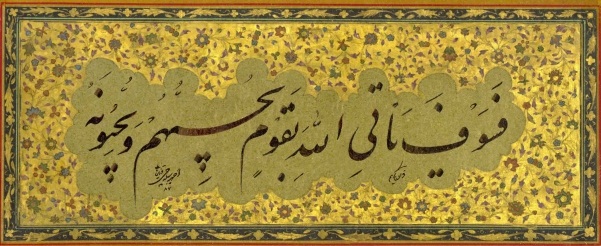 فَسَوْفَ يَأتي اللهُ بِقَومٍ يُحِبُّهُم وَيُحِبُّونَهُ